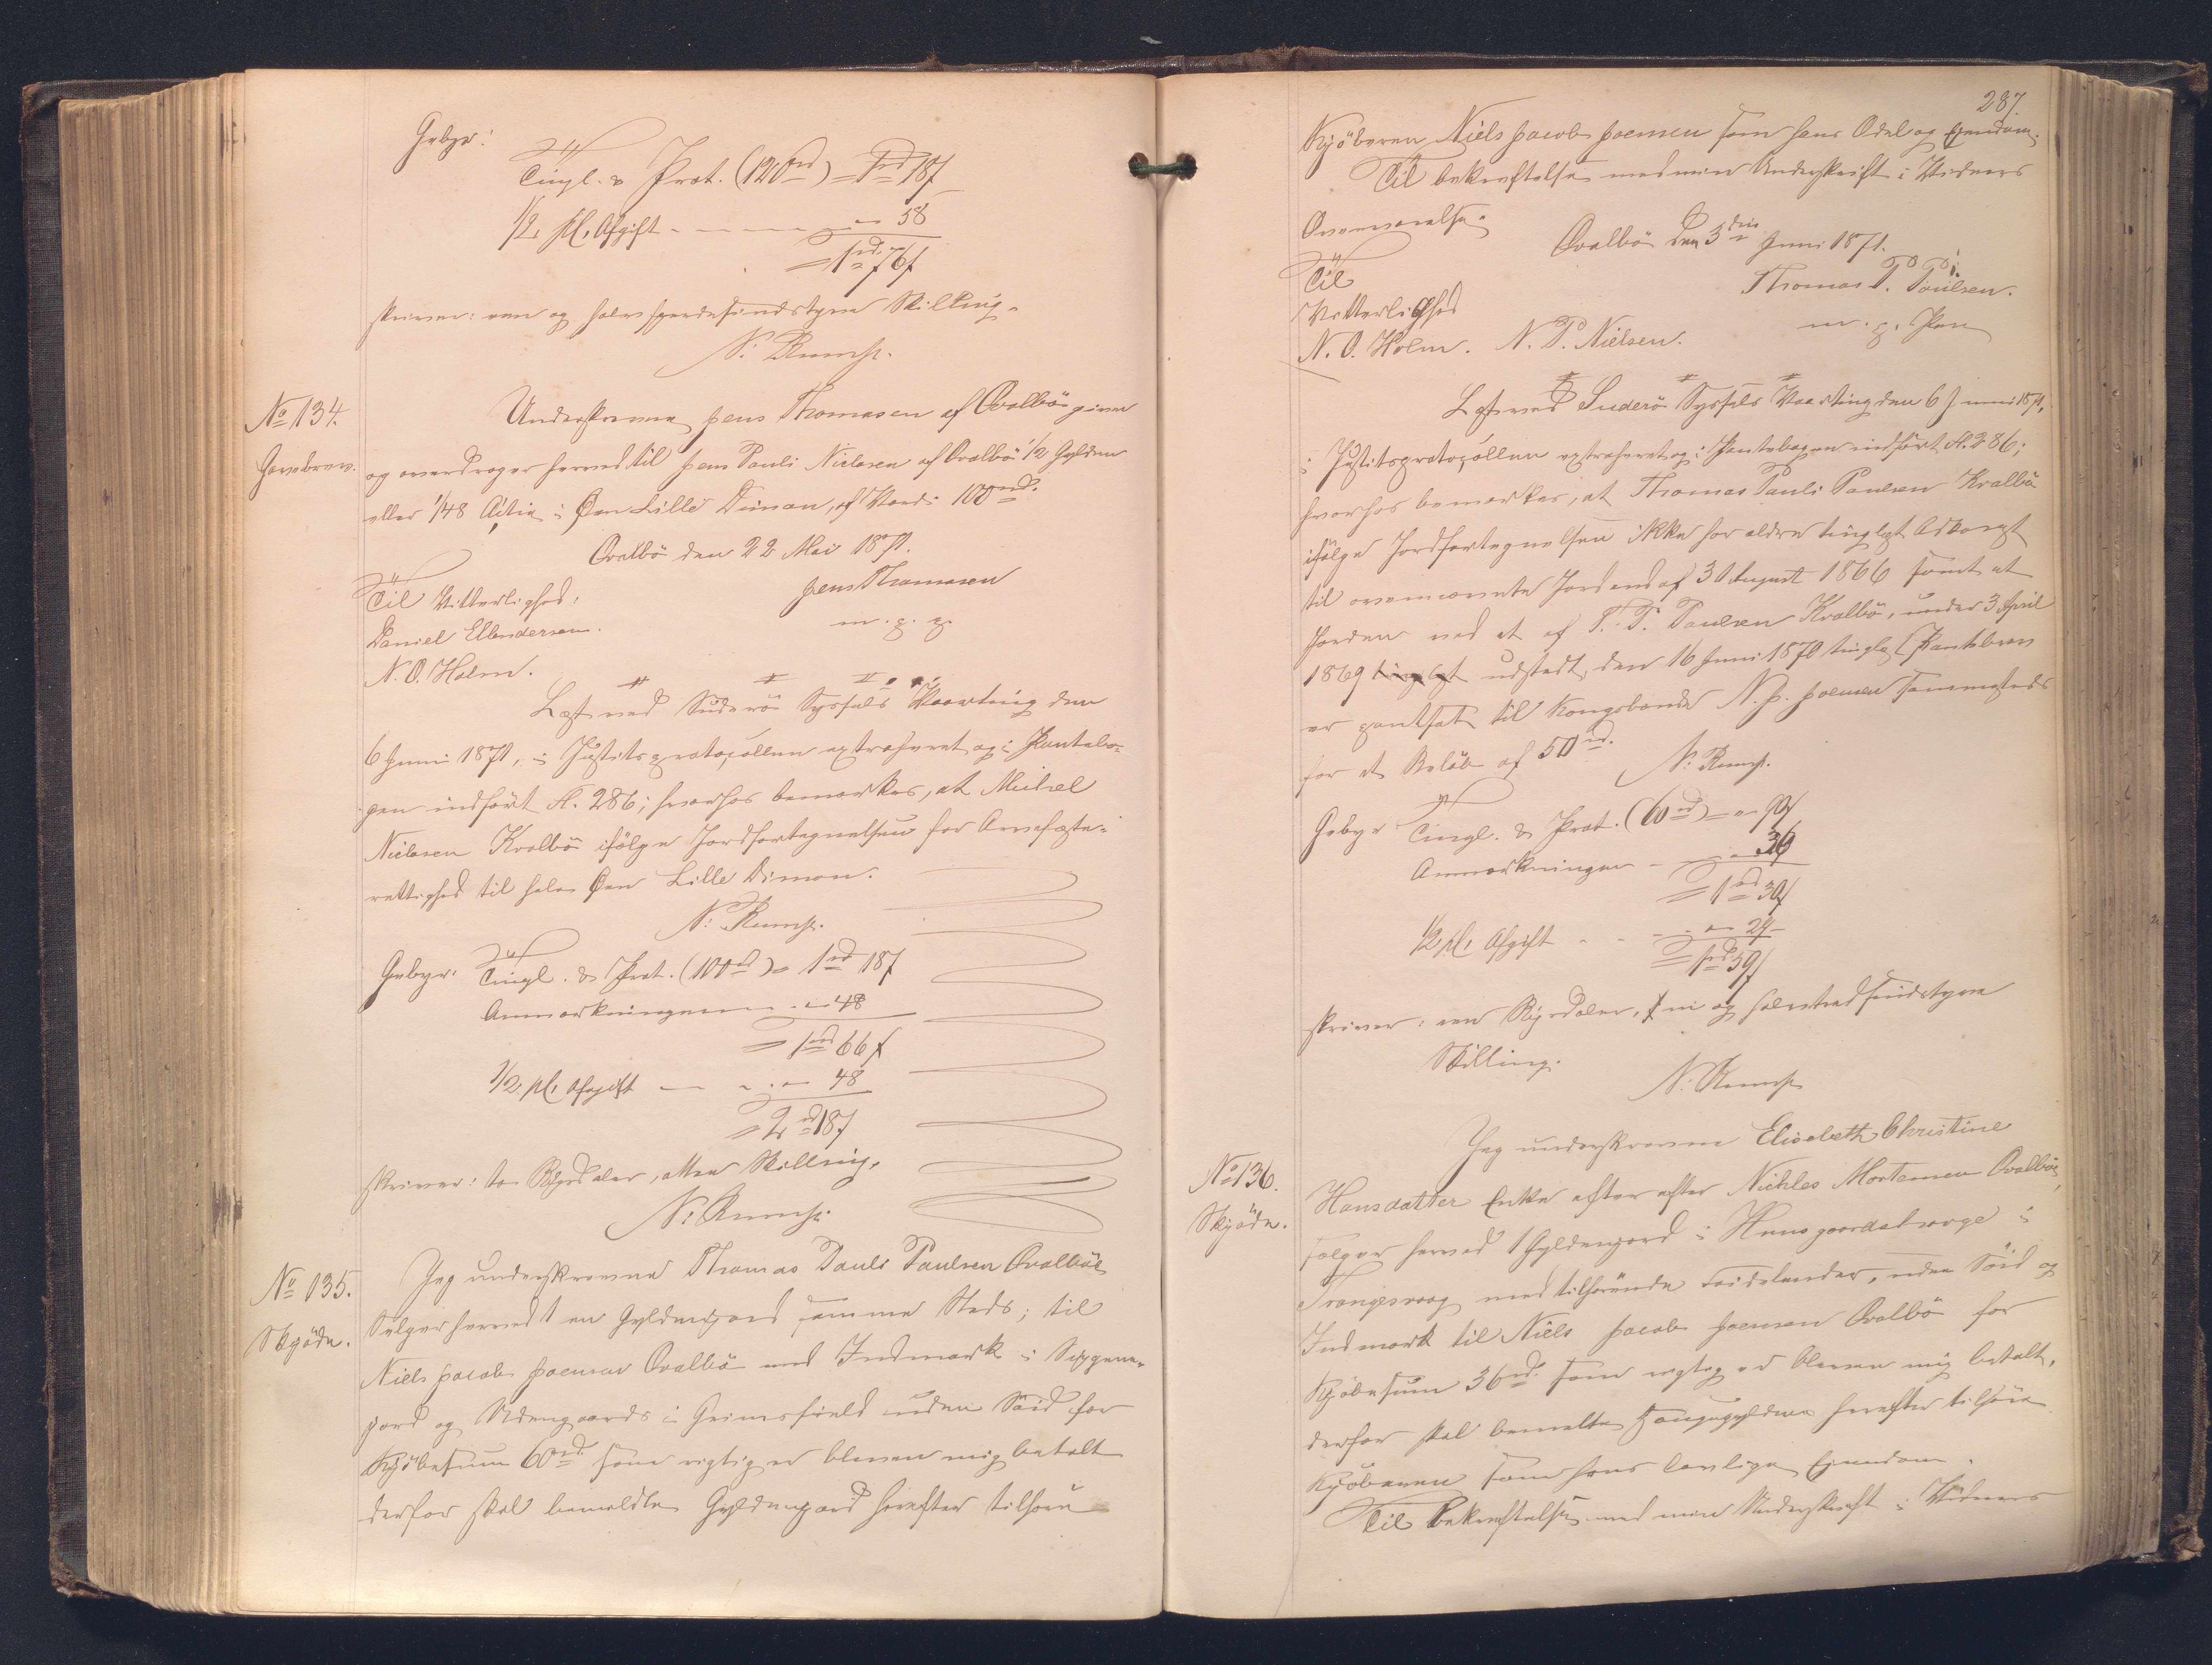 Gebyr:
Tingl. & Prot. (120rd) = 1rd 18f
1/2 pCt. Afgift - - - - " 58
= 1rd 76f
skriver: een og halvfjerdesindstyve Skilling.
N: Rump.
No 134.
Gavebrev.
Underskrevne Jens Thomasen af Qvalbö giver
og overdrager herved til Jens Pauli Nielsen af Qvalbö 1/2 Gylden
eller 1/48 Actie i Øen Lille Dimon, af Værdi 100rd.
Qvalbö den 22 Mai 1871.
Til Vitterlighed: Jens Thomasen
Daniel Ellendersen. m. p. p.
N. O. Holm.
Læst ved Suderö Syssels Vaarting den
6 Juni 1871, i Justitsprotocollen extraheret og i Pantebo-
gen indfört Fl. 286; hvorhos bemærkes, at Michel
Nielsen Kvalbö ifölge Jordfortegnelsen har Arvefæste-
rettighed til hele Øen Lille Dimon.
N: Rump.
Gebyr: Tingl. & Prot. (100rd) = 1rd 18f
Anmærkningen - " 48
= 1rd 66f
1/2 pCt. Afgift - - " 48
= 2rd 18f
skriver: to Rigsdaler, atten Skilling.
N: Rump.
No 135.
Skjöde.
Jeg underskrevne Thomas Pauli Paulsen Qvalböe
Sælger herved 1 en Gyldenjord samme Steds; til
Niels Jacob Joensen Qvalbö med Indmark i
jord og i Grimsfield uden Söid for
Kjöbesum 60rd. som rigtig er bleven mig betalt
derfor skal bemeldte Gyldenjord herefter tilhöre
287.
Kjöberen Niels Jacob Joensen som hans Odel og Ejendom.
Til bekræftelse med min Underskrift i Vidners
Overværelse.
Qvalbö den 3die Juni 1871.
Til Thomas P. Paulsen.
Vitterlighed m. p. Pen
N. O. Holm. N. P. Nielsen.
Læst ved Suderö Syssels Vaarting den 6 Juni 1871,
i Justitsprotocollen extraheret og i Pantebogen indfört Fl. 286;
hvorhos bemærkes, at Thomas Pauli Paulsen Kvalbö
ifölge Jordfortegnelsen ikke har ældre tinglæst Adkomst
til ovennævnte Jord end af 3 August 1866 samt at
Jorden ved et af T. P. Paulsen Kvalbö, under 3 April
1869 tinglyst udstedt, den 16 Juni 1870 tinglæst Pantebrev
er pantsat til Kongsbonde N. J. Joensen sammesteds
for et Belöb af 50rd.
N: Rump.
Gebyr Tingl. & Prot. (60rd) = "
Anmærkningen - - " 36
= 1rd 30f
1/2 pCt. Afgift - - - " 29
= 1rd 59f
skriver: een Rigsdaler, ni og halvtredsindstyve
Skilling.
N: Rump
No 136.
Skjöde.
Jeg underskrevne Elisabeth Christine
Hansdatter Enke efter efter Nichles Mortensen Qvalböe,
sælger herved 1 Gyldenjord i Huusgaardstvorge i
Trangesvaag med tilhörende uden Söid og
Indmark til Niels Jacob Joensen Qvalbö for
Kjöbesum 36rd. som rigtig er bleven mig betalt,
derfor skal bemeldte herefter tilhöre
Kjöberen som hans lovlige Ejendom.
Til Bekræftelse med min Underskrift i Vidners